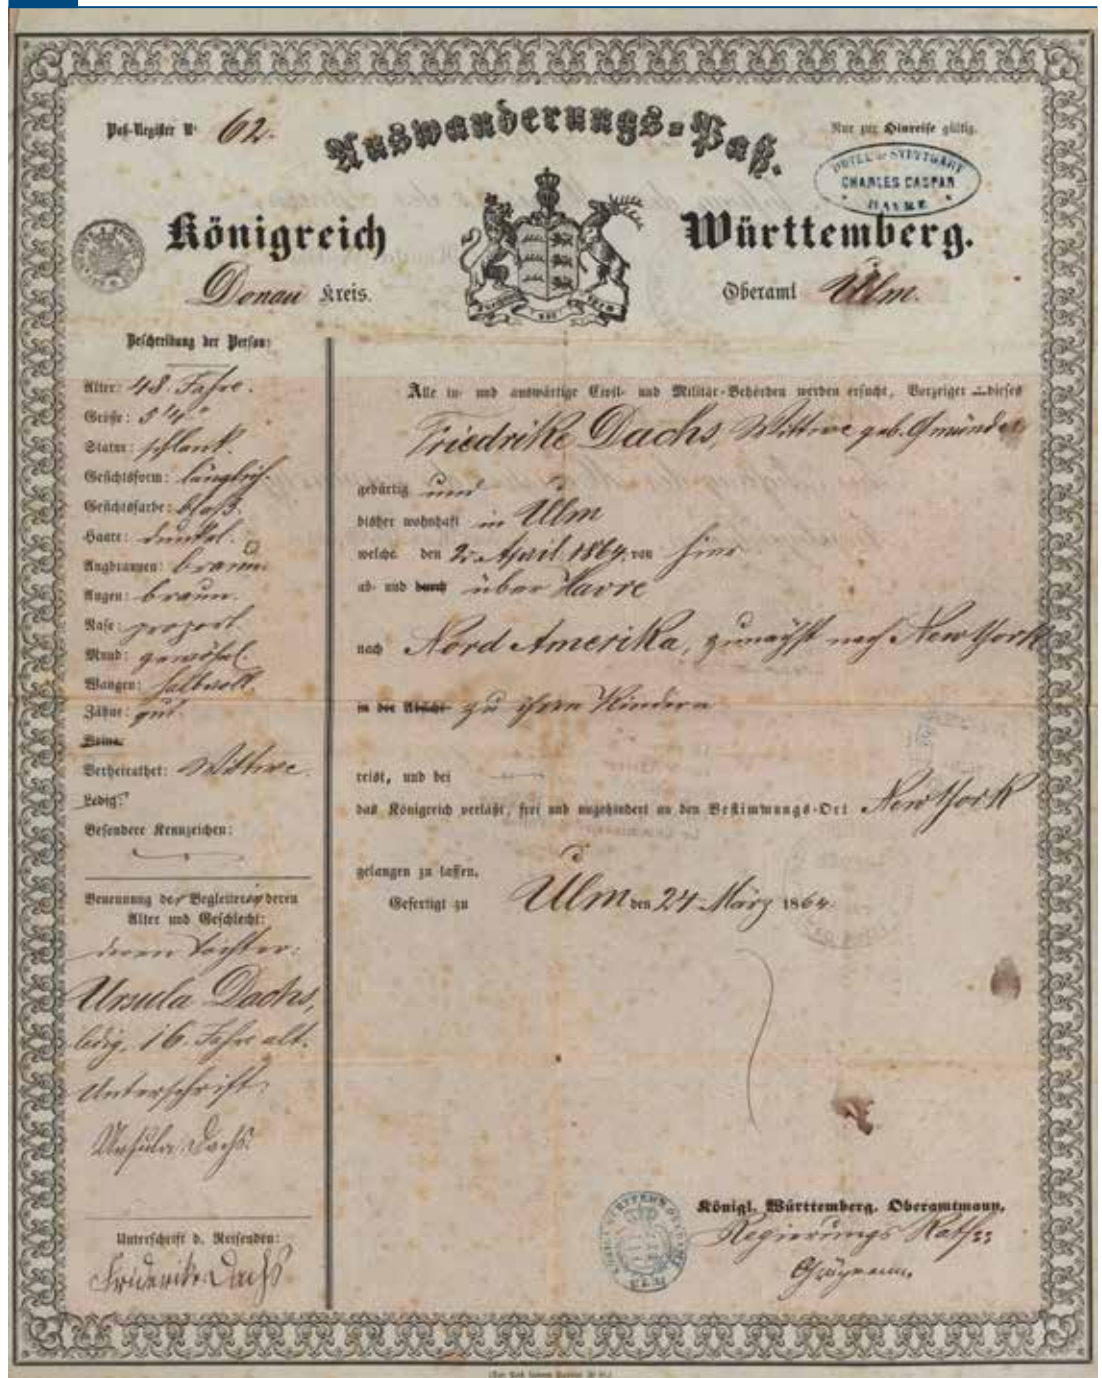 Paß-Register Nº 62.
Auswanderungs-Paß.
Nur zur Hinreise gültig.
HOTEL DE STUTTGART
CHARLES CASPAR
HAVRE
Königreich Württemberg.
Donau Kreis.
Oberamt Ulm.
Beschreibung der Person:
Alter: 48. Jahre.
Größe: 5' 4"
Statur: schlank.
Gesichtsform: länglich.
Gesichtsfarbe: blaß.
Haare: dunkel.
Augbraunen: braun.
Augen: braun.
Nase: proport.
Mund: gewöhnl.
Wangen: halbvoll.
Zähne: gut.
Beine:
Verheirathet: Wittwe.
Ledig:
Besondere Kennzeichen:
Benennung der Begleiterin deren
Alter und Geschlecht:
deren Tochter:
Ursula Dachs,
ledig, 16. Jahre alt.
Unterschrift:
Ursula Dachs.
Unterschrift d. Reisenden:
Friderike Dachs
Alle in- und auswärtige Civil- und Militär-Behörden werden ersucht, Vorzeiger dieses
Friedrike Dachs, Wittwe geb. Gmünder
gebürtig und
bisher wohnhaft in Ulm
welche den 2. April 1864. von hier
ab- und durch über Havre
nach Nord Amerika, zunächst nach New York
in der Absicht zu ihren Kindern
reist, und bei
das Königreich verläßt, frei und ungehindert an den Bestimmungs-Ort New York
gelangen zu lassen.
Gefertigt zu Ulm den 24. März 1864.
Königl. Württemberg. Oberamtmann,
Regierungs Rath: